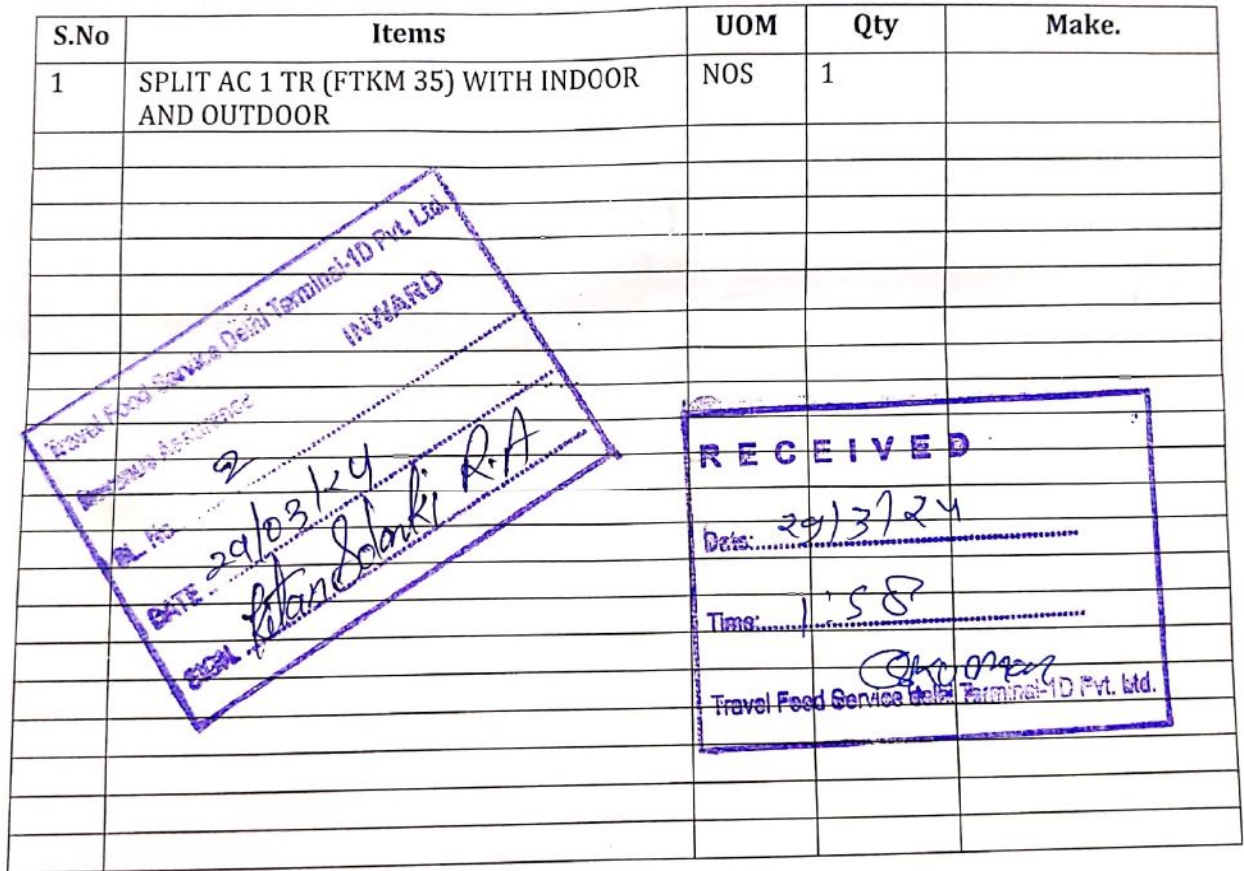 S.No Items UOM Qty Make.
1 SPLIT AC 1 TR (FTKM 35) WITH INDOOR NOS 1
AND OUTDOOR
Travel Food Service Delhi Terminal-1D Pvt. Ltd.
INWARD
Revenue Assurance
SL. No. 2
DATE 29/03/24
SIGN. Solanki R.A
RECEIVED
Date: 29/3/24
Time: 1:58
Travel Food Service Delhi Terminal-1D Pvt. Ltd.